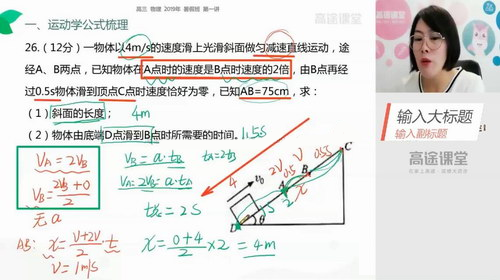 高三 物理 2019年 暑假班 第一讲
高途课堂
一、运动学公式梳理
26.(12分)一物体以4m/s的速度滑上光滑斜面做匀减速直线运动,途
经A、B两点,已知物体在A点时的速度是B点时速度的2倍,由B点再经
过0.5s物体滑到顶点C点时速度恰好为零,已知AB=75cm,求:
(1)斜面的长度; 4m
(2)物体由底端D点滑到B点时所需要的时间。1.5s
V_A=2V_B
V_B=(2V_B+0)/2
无a
AB: x=(V+2V)/2·t
V=1m/s
V_B=a·t_B t_A=2t_B
V_A=2V_B=a·t_A
=2S
x=(0+4)/2×2=4m
4
v₀
2V
0.5s
V
0.5s
A
B
C
D
θ
输入大标题
输入副标题
高途课堂